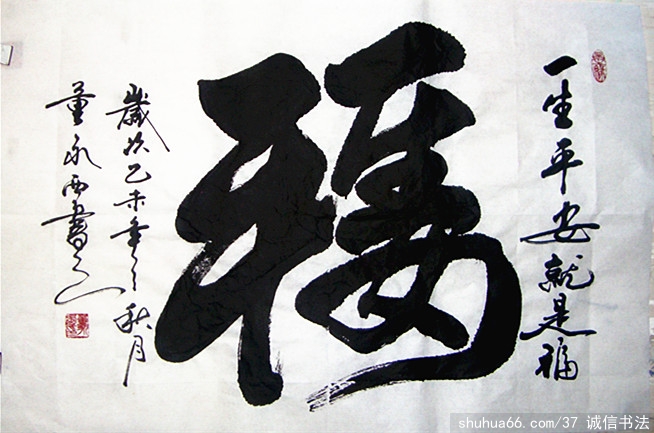 一生平安就是福
福
歲次乙未年之秋月
董永西書之
shuhua66.com/37 诚信书法